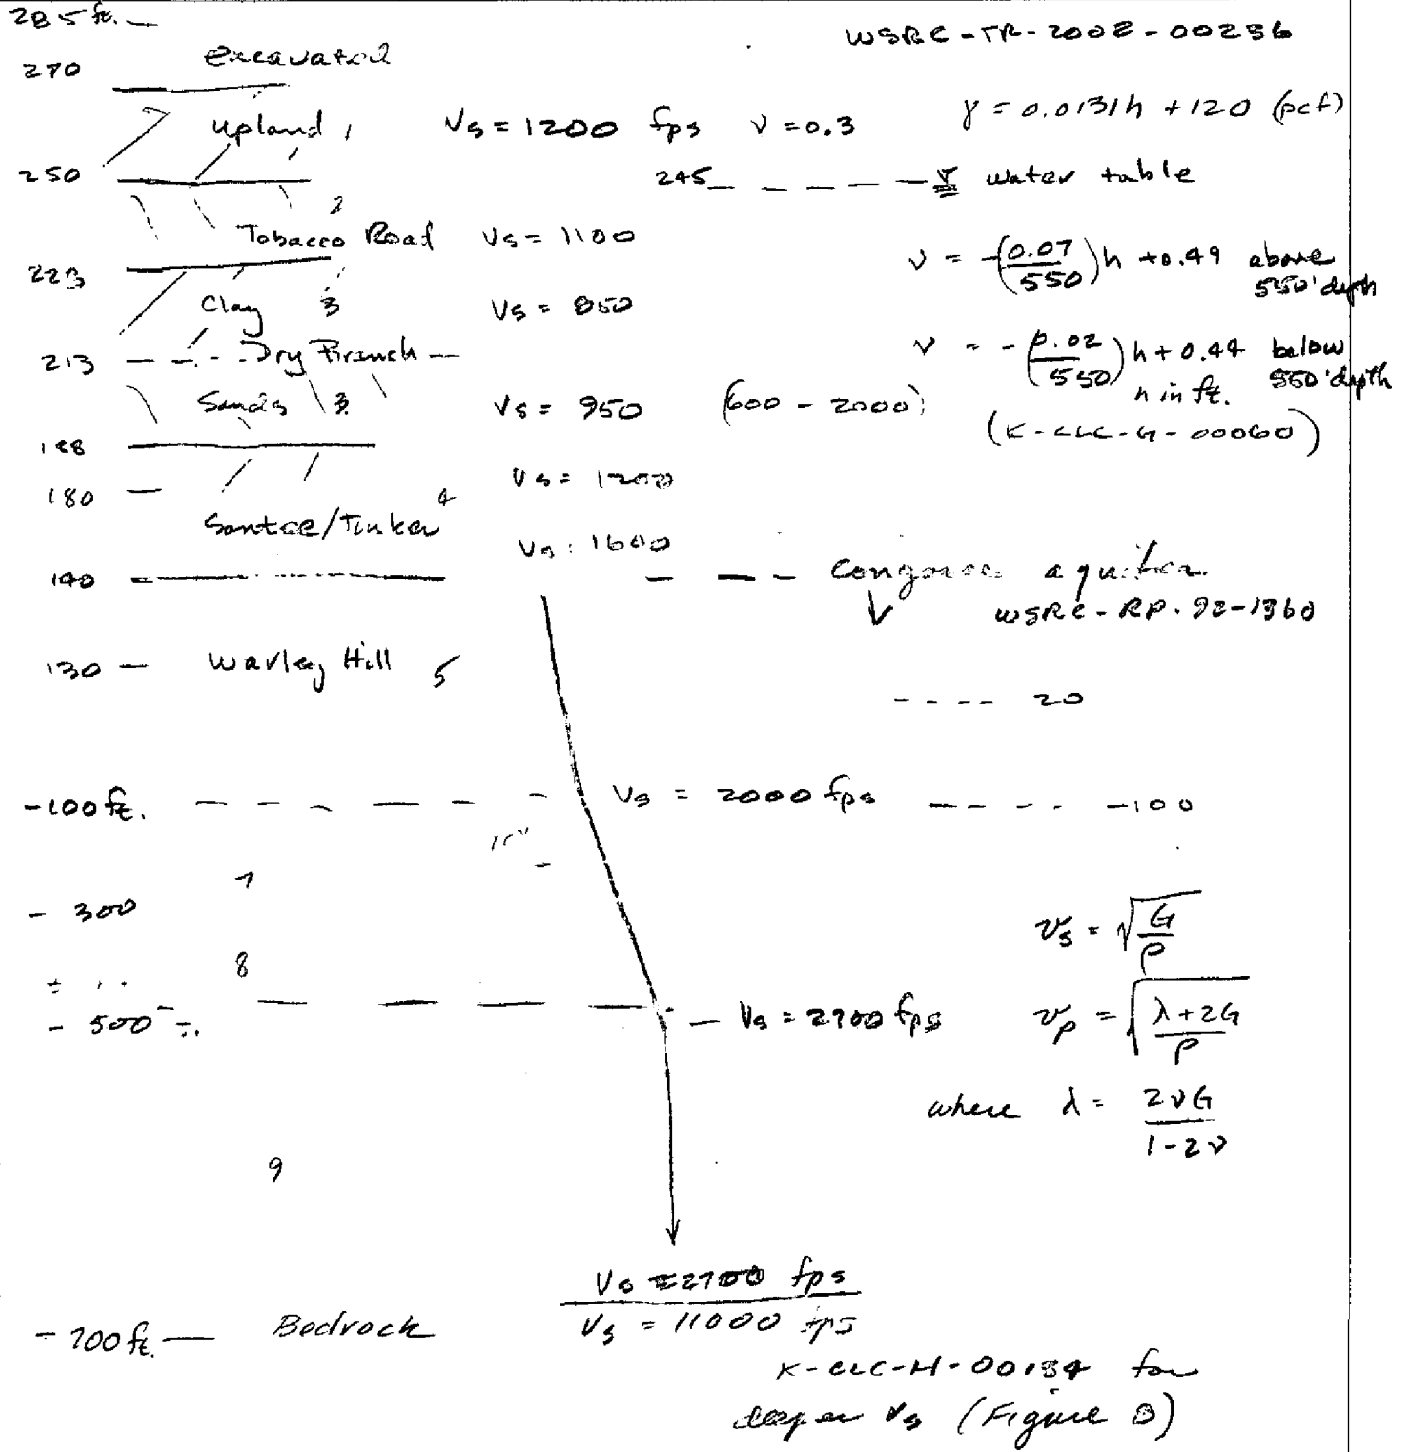 285 ft. —
WSRC-TR-2002-00236
excavated
270
Upland 1 Vs = 1200 fps ν = 0.3 γ = 0.0131h + 120 (pcf)
250
245 water table
Tobacco Road 2 Vs = 1100
ν = -(0.07/550)h + 0.49 above 550' depth
223
Clay 3 Vs = 850
213 Dry Branch
ν = -(0.02/550)h + 0.44 below 550' depth
h in ft.
Sands 3 Vs = 950 (600 - 2000)
(K-CLC-G-00060)
188
180 Vs = 1200
Santee/Tinker 4
Vs = 1600
140 Congaree aquifer
WSRC-RP-92-1360
130 — Warley Hill 5
20
-100 ft. Vs = 2000 fps -100
7
- 300
vs = √(G/ρ)
8
- 500 Vs = 2700 fps
vp = √((λ+2G)/ρ)
where λ = 2νG/(1-2ν)
9
Vs = 2700 fps
Vs = 11000 fps
-700 ft. — Bedrock
for
Vs (Figure